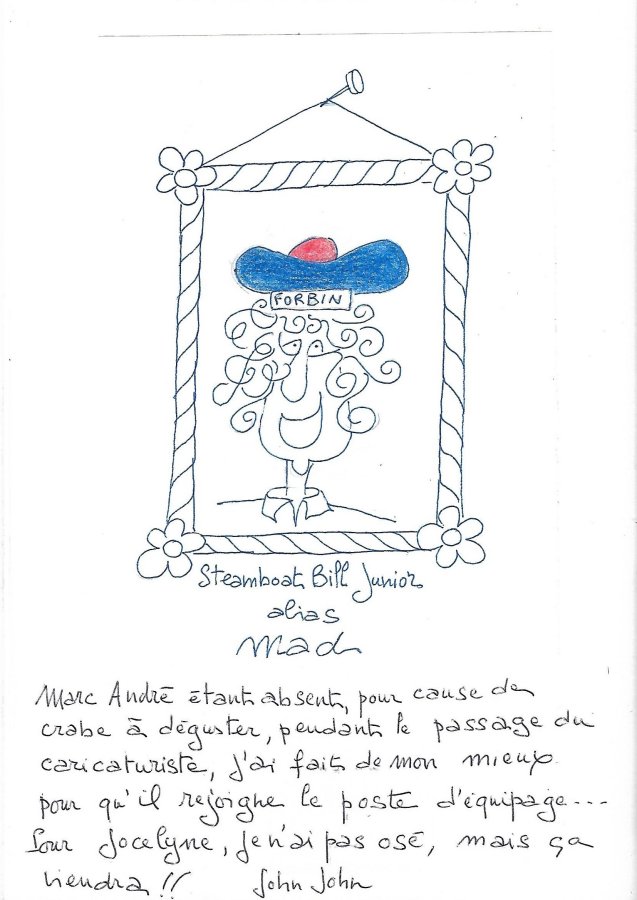 FORBIN
Steamboat Bill Junior
alias
Mad
Marc André étant absent, pour cause de
crabe à déguster, pendant le passage du
caricaturiste, j'ai fait de mon mieux
pour qu'il rejoigne le poste d'équipage...
Pour Jocelyne, je n'ai pas osé, mais ça
viendra !!   John John